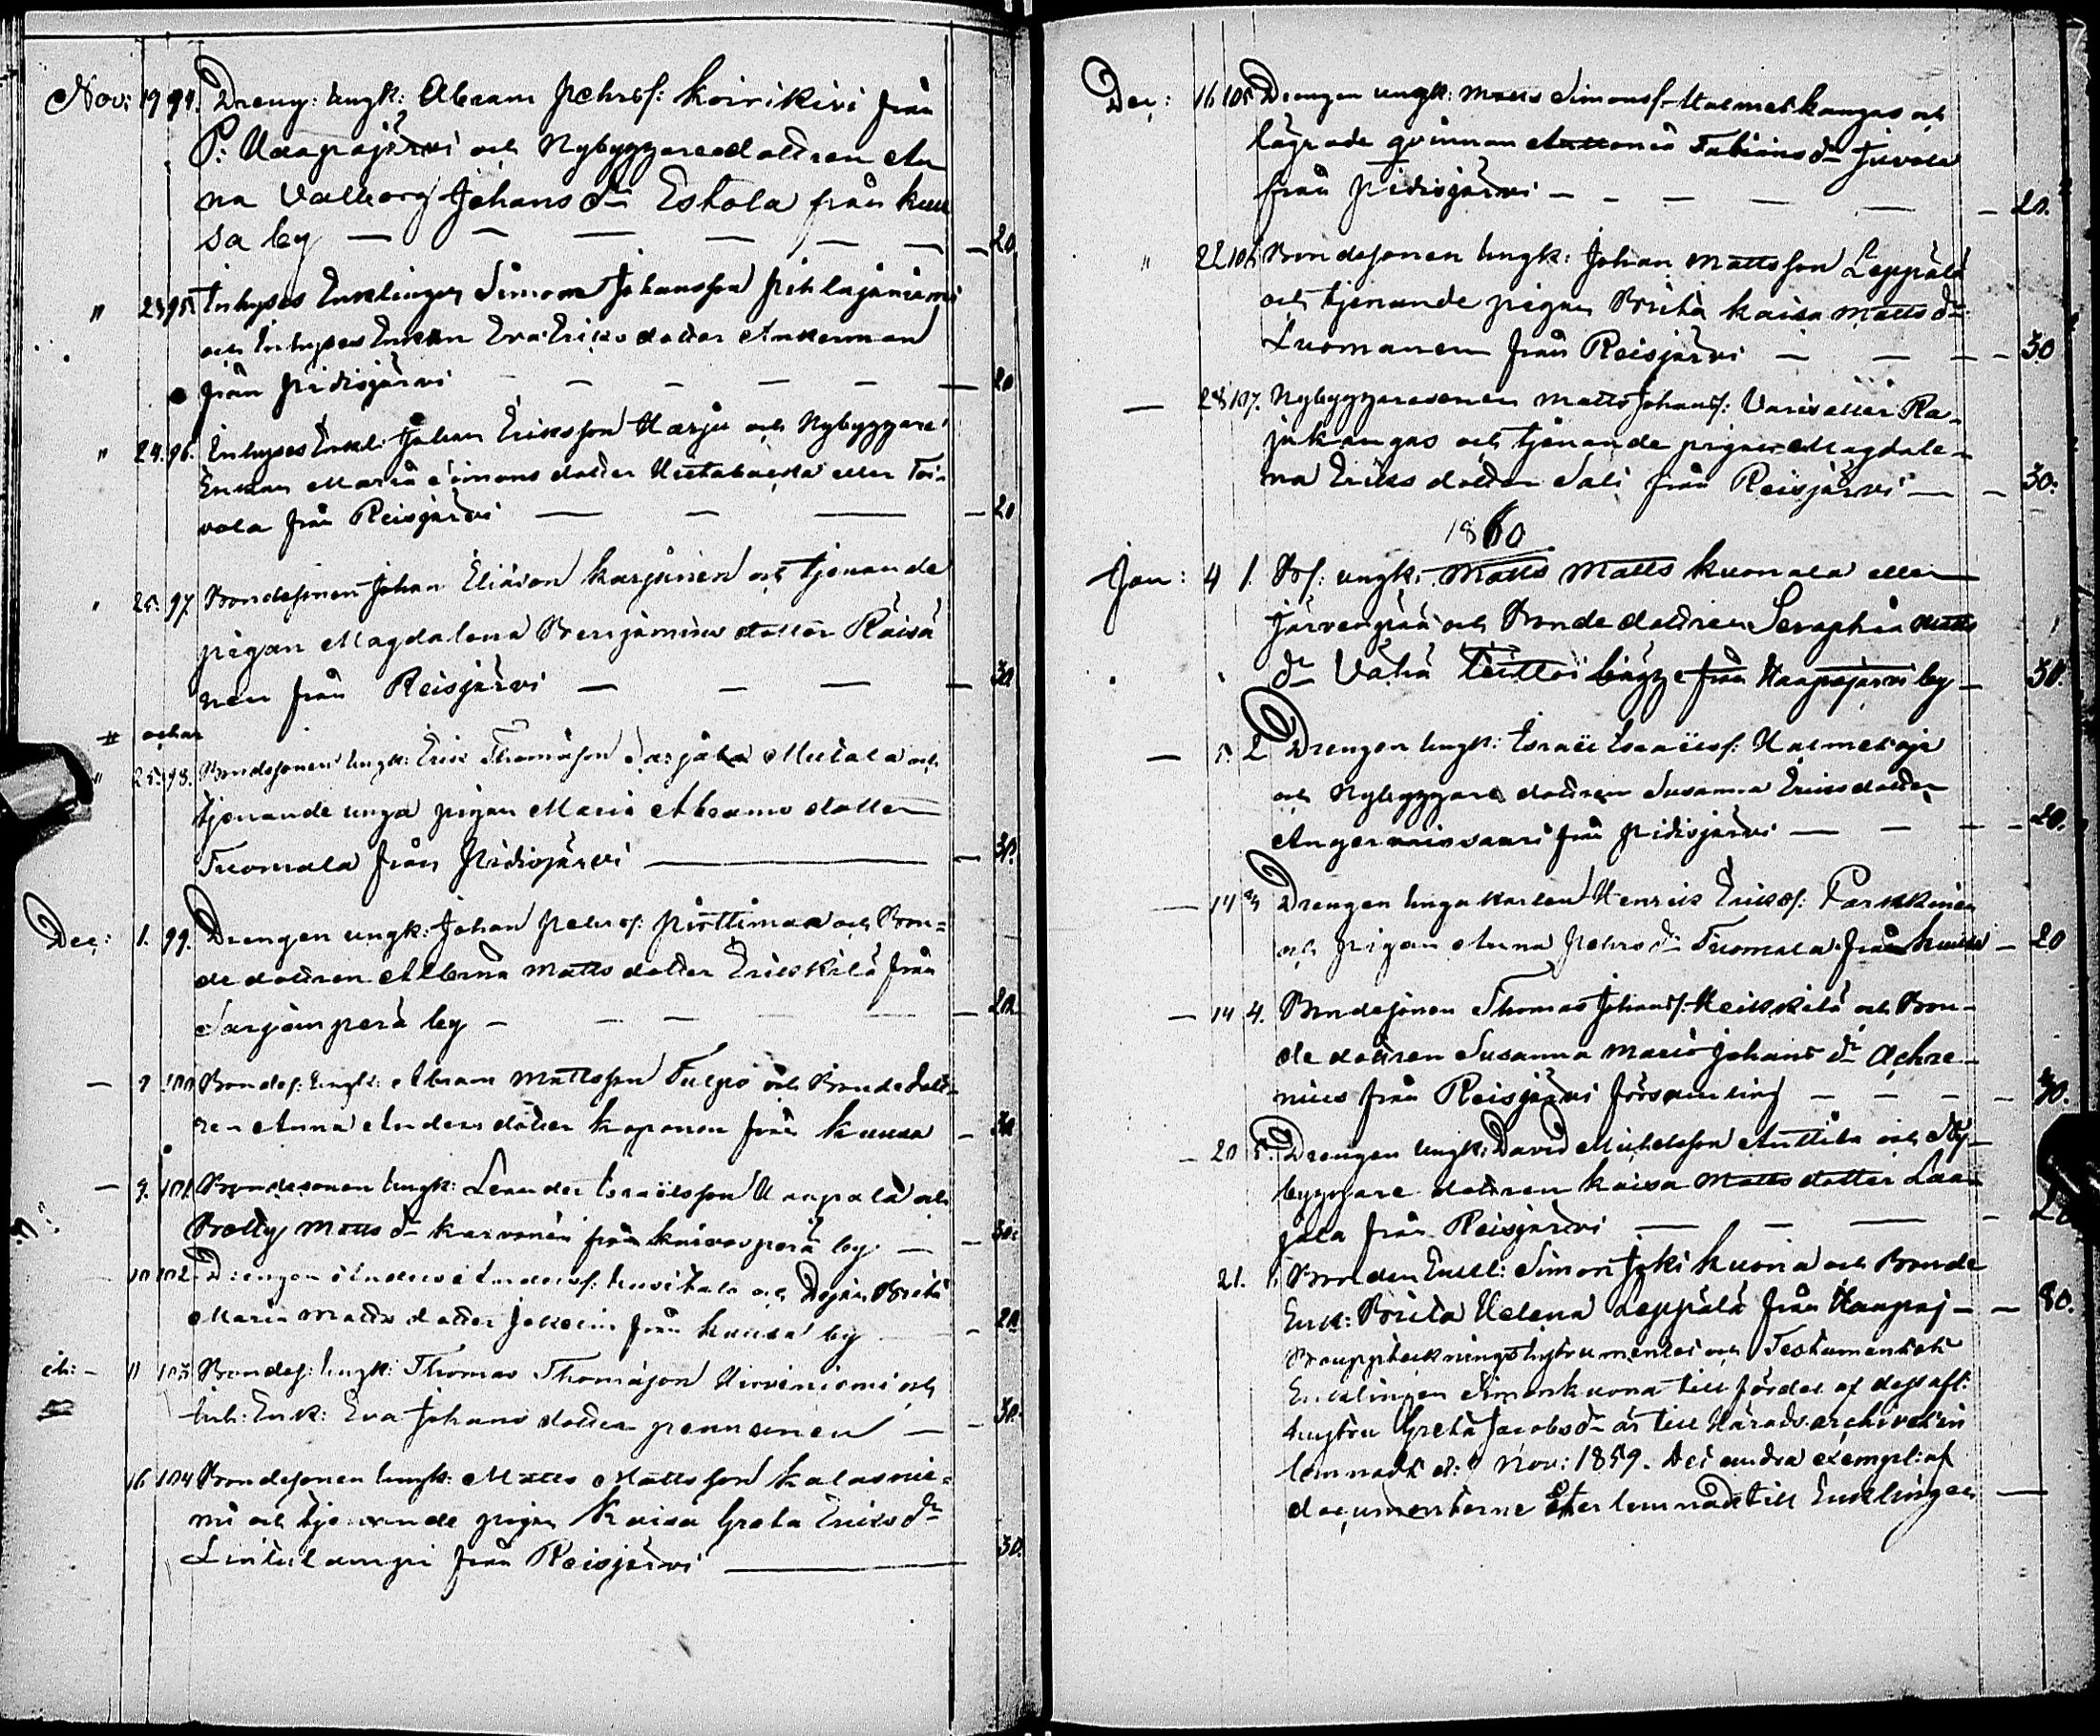 Nov: 19 94. Dreng: ungk: Abram Pehrsf: Koirikivi från
P: Haapajärvi och Nybyggaredottren An
na Valborg Johans dr Estola från Kuu
sa by — — — — — — 20
" 23 95. Inhyses Enklingen Simon Johansson Pihlajaniemi
och Inhyses Enkan Eva Eriksdotter Ankerman
från Pidisjärvi — — — — — 20
" 24. 96. Inhyses Enkl: Johan Eriksson Harju och Nybyggare
Enkan Maria Simons dotter eller Toi-
vola från Reisjärvi — — — 20
" 25. 97. Bondesonen Johan Eliasson Karjanen och tjenande
pigan Magdalena Benjamins dotter Räisä
nen från Reisjärvi — — — 30
" 25. 98. Bondesonen ungk: Erik Thomasson Mutala och
tjenande unga pigan Maria Abrams dotter
Tuomala från Pidisjärvi — 30.
Dec: 1. 99. Drengen ungk: Johan Pehrsf: Pirttimaa och Bon=
de dottren Albrna Matts dotter Erickilä från
Sarjanperä by — — — — — 20.
— 9 100 Bondes: ungk: Abram Mattsson Tulpo och Bonde dott=
ren Anna Anders dotter Koponen från Kuusa — 30
— 9. 101. Bondesonen ungk: Leander Israelsson Haapala och
Betty Matts dr Karvonen från Karvosperä by — — 30.
10 102. Drengen Anders Andersf: Uusitalo och Pigan Brita
Maria Matts dotter från Kuusa by — 20
— 11 103 Bondes: ungk: Thomas Thomasson Hirviniemi och
Inh: Enk: Eva Johans dotter Pennanen — — 30.
16 104 Bondesonen ungk: Matts Mattsson Kalasnie=
mi och tjenande pigan Kaisa Greta Eriks dr
Lintulampi från Reisjärvi — 30.
Dec: 16 105 Drengen ungk: Matts Simonsf: Halmetkangas och
lägrade qvinnan Antonia Fabians dr Juvola
från Pidisjärvi — — — — — — 20.
" 22 106 Bondesonen ungk: Johan Mattsson Leppälä
och tjenande pigan Brita Kaisa Matts dr
Luomanen från Reisjärvi — — — — 30
— 28 107. Nybyggaresonen Matts Johansf: Varis eller Ra-
jakangas och tjenande pigan Magdale-
na Eriks dotter Sali från Reisjärvi — — 30.
1860
Jan: 4 1. Bsf: ungk: Matts Matts Kuonala eller
Järvenpää och Bonde dottren Seraphia Matts
dr Vähä från Haapajärvi by — 30.
— 5. 2 Drengen ungk: Israel Israelsf: Halmetoja
och Nybyggare dottren Susanna Eriksdotter
Angervaisvaari från Pidisjärvi — — — — 20.
— 14 3 Drengen unga karlen Henrik Eriksf: Parkkinen
och pigan Anna Pehrs dr Tuomala från Kuusa — 20
— 14 4. Bondesonen Thomas Johansf: Heikkilä och Bon-
de dottren Susanna Maria Johans dr Achre-
nius från Reisjärvi församling — — — — 30.
— 20 5. Drengen ungk: David Michelsson Anttila och Ny-
byggare dottren Kaisa Matts dotter Laa-
jala från Reisjärvi — — — —
21. Bonden Enkl: Simon Joki Kuona och Bonde
Enk: Brita Helena Leppälä från Haapaj — — 30.
Bouppteckningsinstrumentet och Testamentet
Enklingen Simon Kuona till fördel af dess afl:
hustru Greta Jacobsdr är till Häradsarchivet in
lemnadt d: 9 Nov: 1859. Det andra exempl: af
documenterne åter lemnadt till Enklingen —